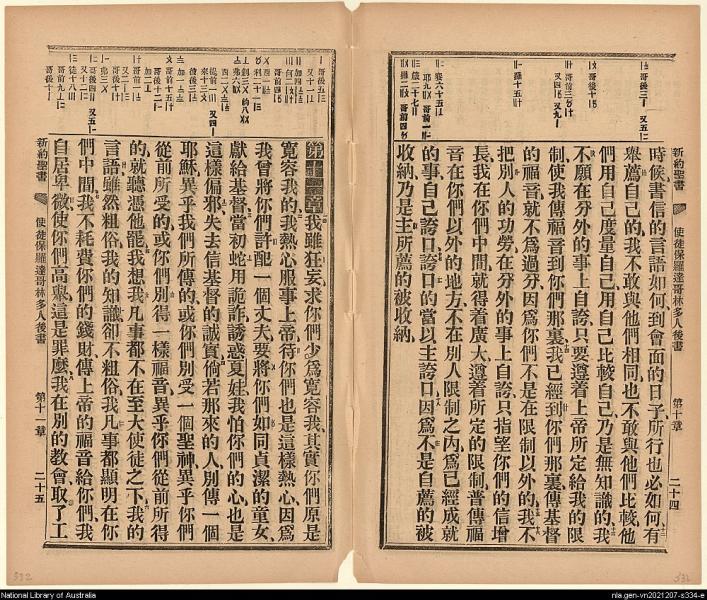 新約聖書
使徒保羅達哥林多人後書
第十章
二十四
時候書信的言語如何、到會面的日子、所行也必如何、有
舉薦自己的、我不敢與他們相同、也不敢與他們比較、他
們用自己度量自己、用自己比較自己、乃是無知識的、我
不願在分外的事上自誇、只要遵着上帝所定給我的限
制、使我傳福音到你們那裏、我已經到你們那裏傳基督
的福音、就不爲過分、因爲你們不是在限制以外的、我不
把別人的功勞、在分外的事上自誇、只指望你們的信增
長、我在你們中間、就得着廣大、遵着所定的限制、普傳福
音在你們以外的地方、不在別人限制之內、爲已經成就
的事自己誇口、誇口的當以主誇口、因爲不是自薦的被
收納、乃是主所薦的被收納、
第十一章我雖狂妄、求你們少爲寬容我、其實你們原是
寬容我的、我熱心服事上帝、待你們也是這樣熱心、因爲
我曾將你們許配一個丈夫、要將你們如同貞潔的童女、
獻給基督、當初蛇用詭詐誘惑夏娃、我怕你們的心也是
這樣偏邪、失去信基督的誠實、倘若那來的人、別傳一個
耶穌、異乎我們所傳的、或你們別受一個聖神、異乎你們
從前所受的、或你們別得一樣福音、異乎你們從前所得
的、就聽憑他罷、我想我凡事都不在至大使徒之下、我的
言語雖然粗俗、我的知識卻不粗俗、我凡事都顯明在你
們中間、我不耗費你們的錢財、傳上帝的福音給你們、我
自居卑微、使你們高舉、這是罪麽、我在別的教會取了工
新約聖書
使徒保羅達哥林多人後書
第十一章
二十五
National Library of Australia
nla.gen-vn2021207-s334-e